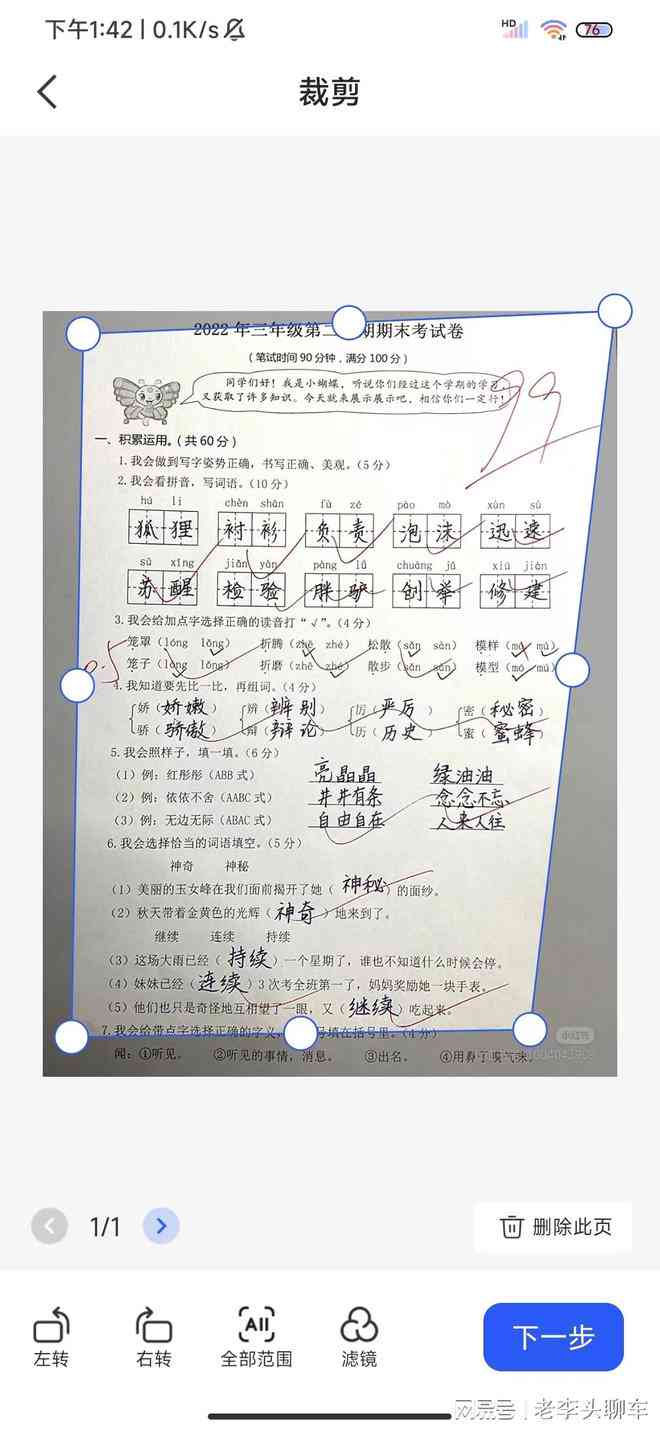 下午1:42 | 0.1K/s
HD 76
裁剪
2022年三年级第二 期期末考试卷
（笔试时间90分钟，满分100分）
同学们好！我是小蝴蝶，听说你们经过这个学期的学习，
又获取了许多知识。今天就来展示展示吧，相信你们一定行！
99
一、积累运用。（共60分）
1.我会做到写字姿势正确，书写正确、美观。（5分）
2.我会看拼音，写词语。（10分）
hú li chèn shān fù zé pào mò xùn sù
狐狸 衬衫 负责 泡沫 迅速
sū xǐng jiǎn yàn pàng lǘ chuàng jǔ xiū jiàn
苏醒 检验 胖驴 创举 修建
3.我会给加点字选择正确的读音打“√”。（4分）
笼罩（lóng lǒng） 折腾（zhē zhé） 松散（sǎn sàn） 模样（mó mú）
0.5
笼子（lóng lǒng） 折磨（zhē zhé） 散步（sǎn sàn） 模型（mó mú）
4.我知道要先比一比，再组词。（4分）
娇（娇嫩） 辨（辨别） 厉（严厉） 密（秘密）
骄（骄傲） 辩（辩论） 历（历史） 蜜（蜜蜂）
5.我会照样子，填一填。（6分）
（1）例：红彤彤（ABB式） 亮晶晶 绿油油
（2）例：依依不舍（AABC式） 井井有条 念念不忘
（3）例：无边无际（ABAC式） 自由自在 人来人往
6.我会选择恰当的词语填空。（5分）
神奇 神秘
（1）美丽的玉女峰在我们面前揭开了她（神秘）的面纱。
（2）秋天带着金黄色的光辉（神奇）地来到了。
继续 连续 持续
（3）这场大雨已经（持续）一个星期了，谁也不知道什么时候会停。
（4）妹妹已经（连续）3次考全班第一了，妈妈奖励她一块手表。
（5）他们也只是奇怪地互相望了一眼，又（继续）吃起来。
7.我会给带点字选择正确的字义， 号填在括号里。（4分）
闻：①听见。 ②听见的事情，消息。 ③出名。 ④用鼻子嗅气味。
小红书
1/1
删除此页
左转
右转
全部范围
滤镜
下一步
网易号 | 老李头聊车